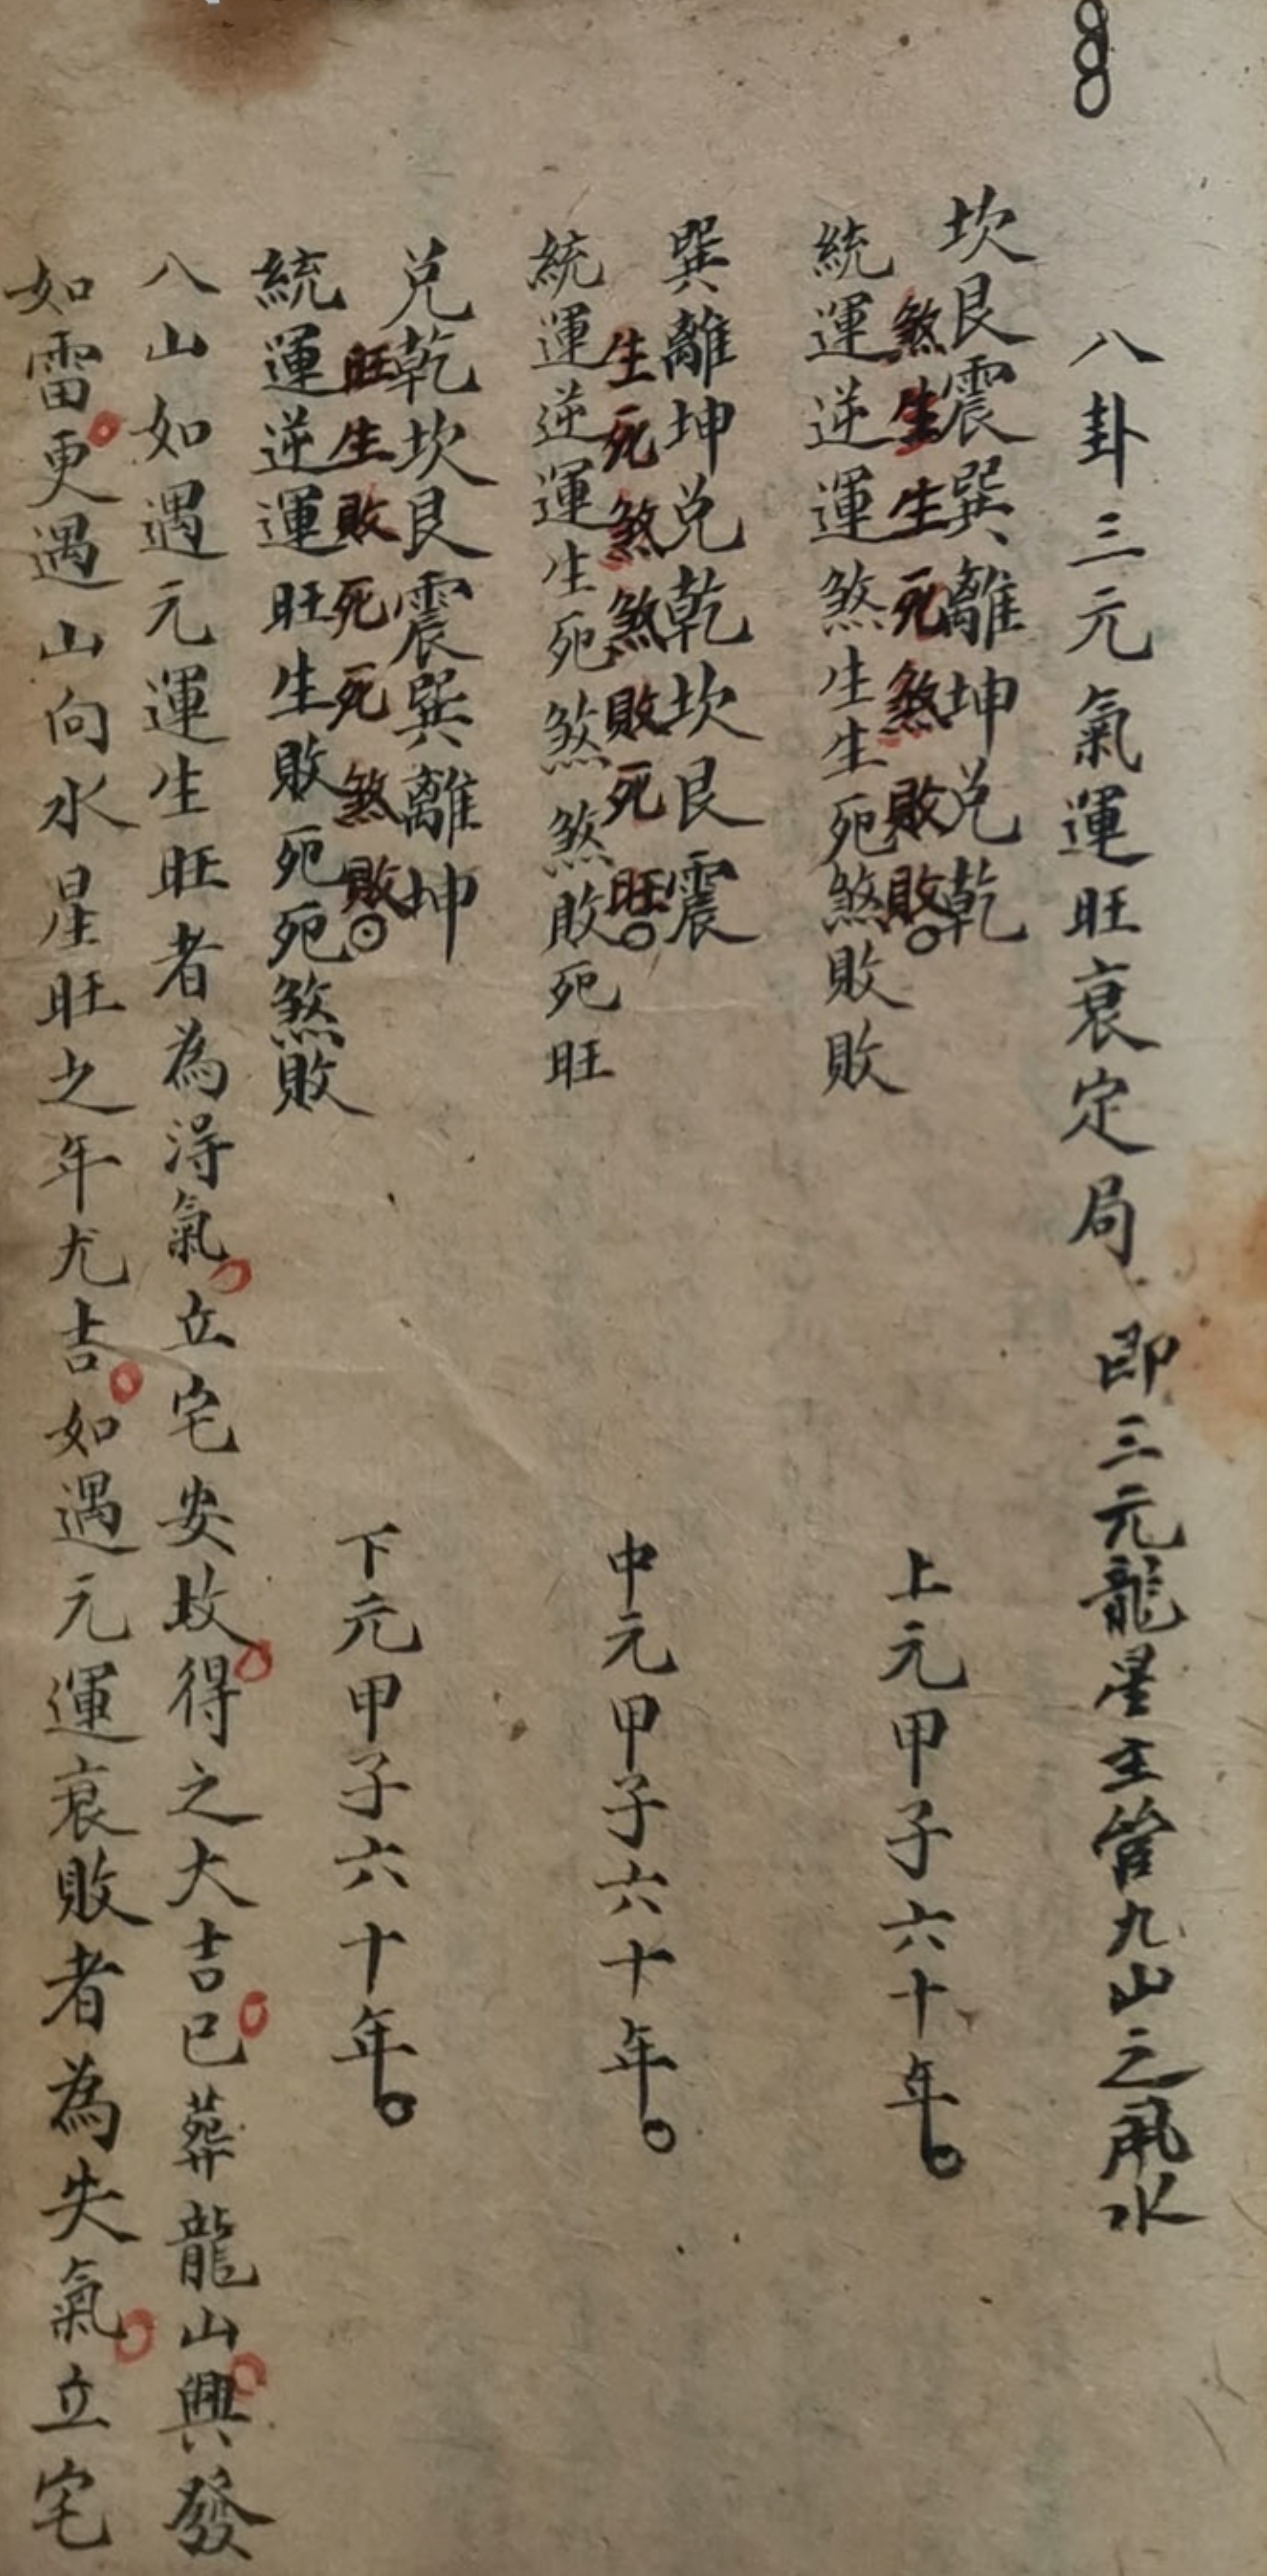 八卦三元氣運旺衰定局 即三元龍星主管九山之風水
坎艮震巽離坤兌乾
煞生生死煞敗敗
統運逆運煞生生死煞敗敗
上元甲子六十年
巽離坤兌乾坎艮震
生死煞煞敗死旺
統運逆運生死煞煞敗死旺
中元甲子六十年
兌乾坎艮震巽離坤
旺生敗死死煞敗
統運逆運旺生敗死死煞敗
下元甲子六十年
八山如遇元運生旺者為淂氣立宅安坟得之大吉已葬龍山興發
如雷更遇山向水星旺之年尤吉如遇元運衰敗者為失氣立宅